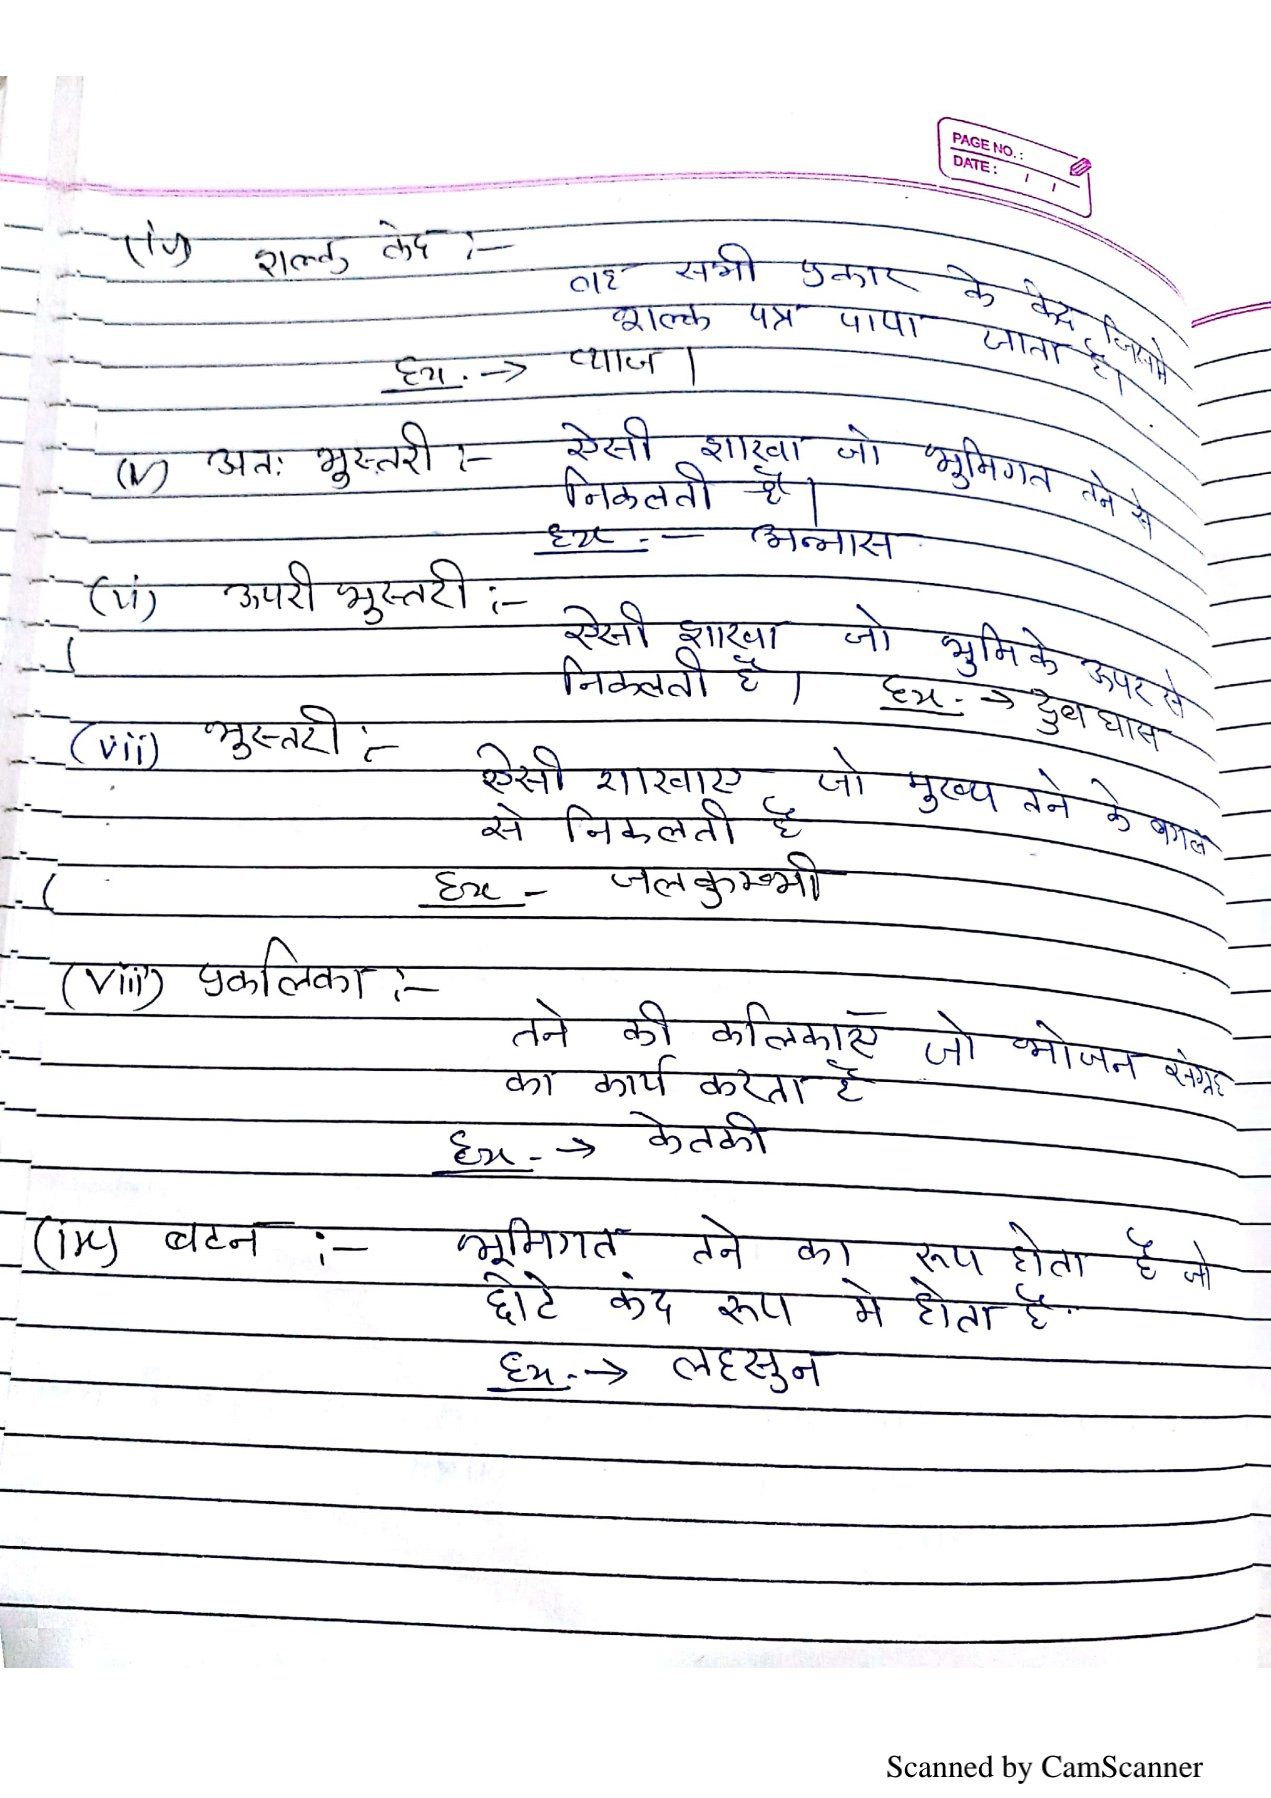 PAGE NO.:
DATE: / /
(iv) शल्क केद :-
वह सभी प्रकार के केद जिसमे
शल्क पत्र पाया जाता है।
Ex. → प्याज।
(v) अतः भुस्तरी :- ऐसी शाखा जो भूमिगत तने से
निकलती है।
Ex. - अन्नास
(vi) ऊपरी भुस्तरी :-
ऐसी शाखा जो भुमि के ऊपर से
निकलती है। Ex. → दुब घास
(vii) भुस्तरी :-
ऐसी शाखाए जो मुख्य तने के बगल
से निकलती है
Ex - जलकुम्भी
(viii) प्रकलिका :-
तने की कलिकाएँ जो भोजन संग्रह
का कार्य करता है
Ex. → केतकी
(ix) बटन :- भूमिगत तने का रूप होता है जो
छोटे कंद रूप मे होता है.
Ex. → लहसुन
Scanned by CamScanner